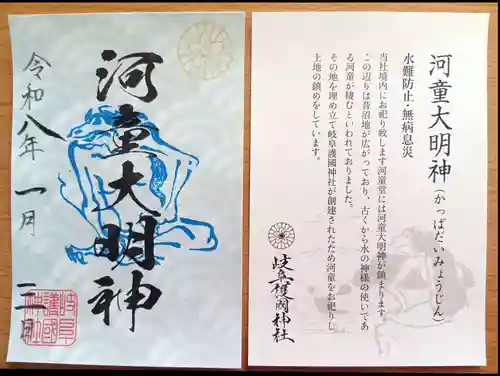 河童大明神
令和八年
一月
岐阜
護國
神社
河童大明神(かっぱだいみょうじん)
水難防止・無病息災
当社境内にお祀り致します河童堂には河童大明神が鎮まります。
この辺りは昔沼地が広がっており、古くから水の神様の使いであ
る河童が棲むといわれておりました。
その地を埋め立て岐阜護國神社が創建されたため河童をお祀りし
土地の鎮めをしています。
岐阜護國神社